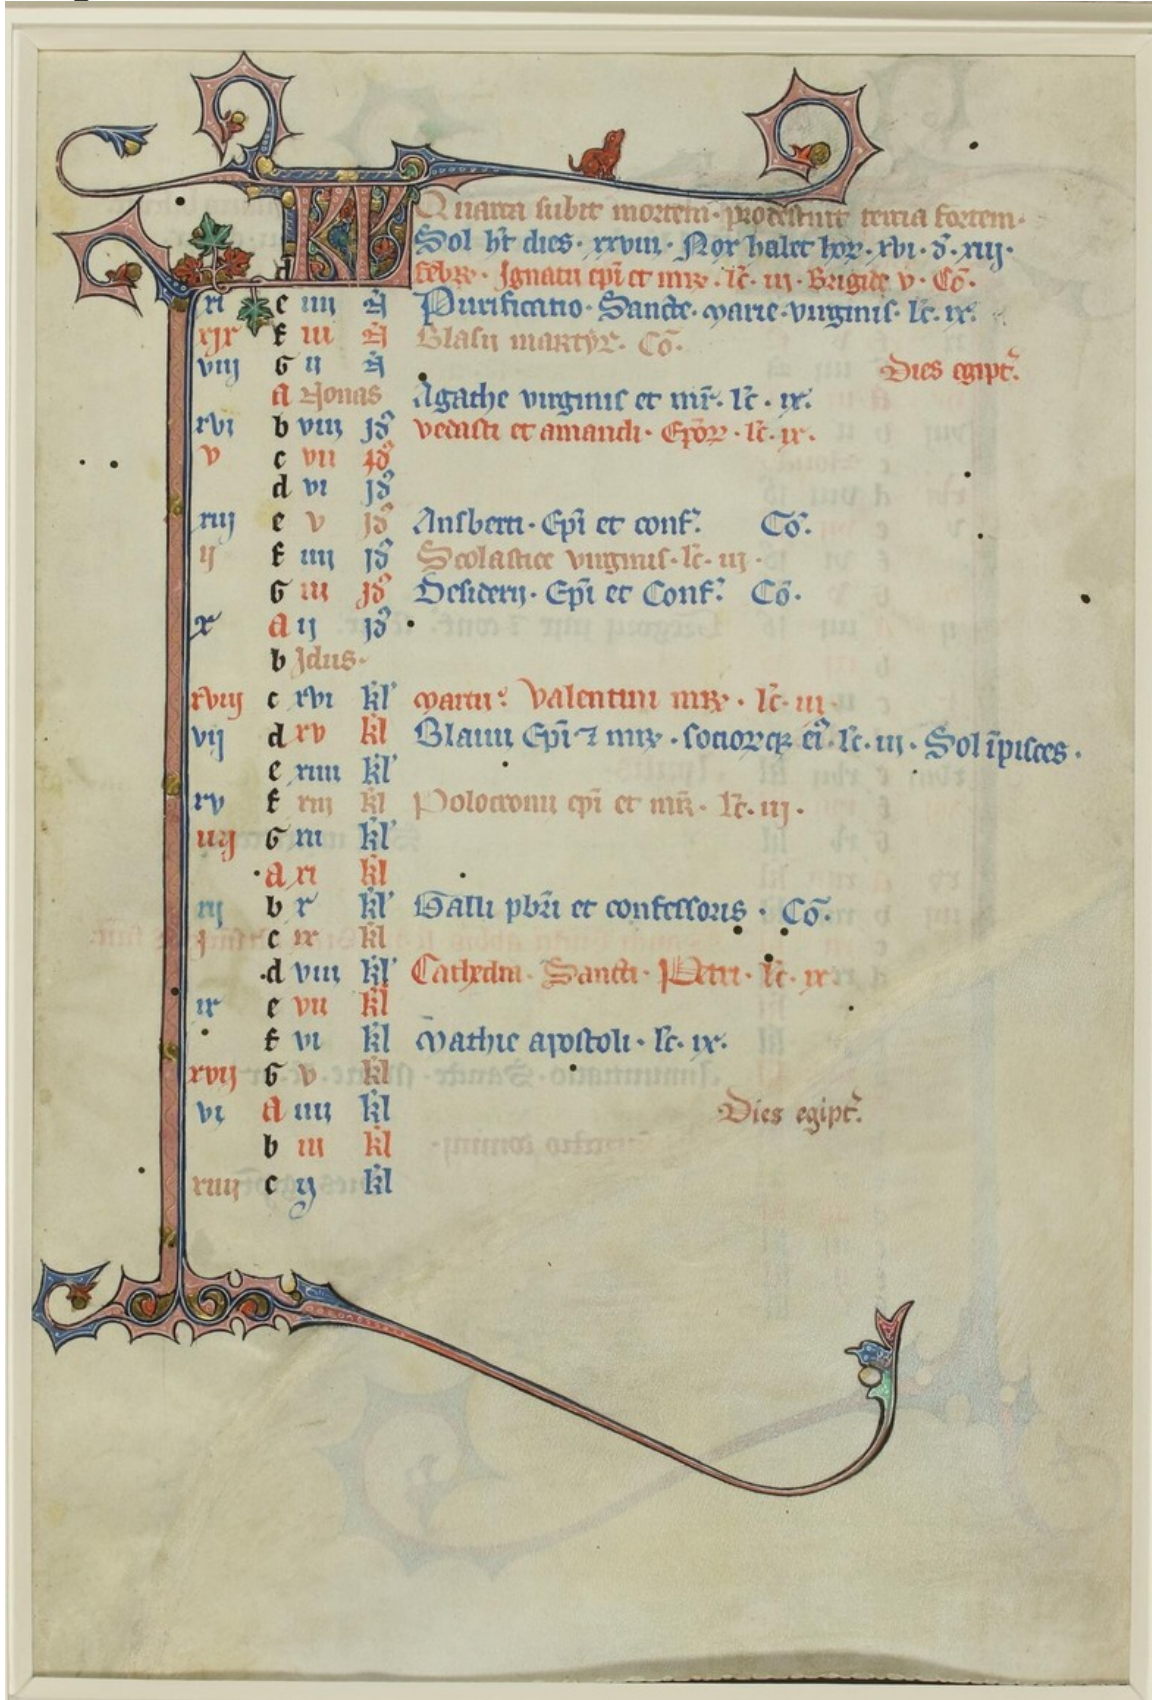 Quarta subit mortem · prosternit tercia fortem ·
KL Sol ht dies · xxviii · Nox habet hor · xvi · d · xiij ·
d febr · Ignatii epi et mr · lc · iij · Brigide v · Co ·
xi e iiij N Purificatio · Sancte · marie · virginis · lc · ix ·
xix f iii N Blasii martyr · Co ·
viij G ii N Dies egipt
a Nonas Agathe virginis et mr · lc · ix ·
xvi b viij jd vedasti et amandi · Epor · lc · ix ·
v c vii jd
d vi jd
xiij e v jd Ansberti · Epi et conf Co ·
ij f iiij jd Scolastice virginis · lc · iij ·
G iii jd Desiderij · Epi et Conf Co ·
x a ij jd
b Idus ·
xviij c xvi kl martii Valentini mr · lc · iij
vij d xv kl Blauii Epi ⁊ mr · socior q ei · lc · iij · Sol i pisces ·
e xiiii kl
xv f xiij kl Polocronii epi et mr · lc · iij ·
iiij G xii kl
a xi kl
xij b x kl Galli pbri et confessoris · Co ·
j c ix kl
d viii kl Cathedra · Sancti · Petri · lc · ix
ix e vii kl
f vi kl Mathie apostoli · lc · ix ·
xvij G v kl
vi a iiii kl Dies egipt
b iii kl
xiiij c ij kl